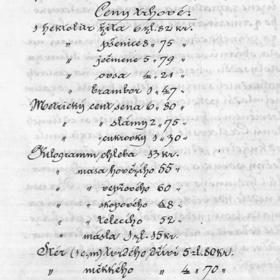 Ceny trhové:
1 hektolitr žita 6 zl. 82 kr.
„ pšenice 8 „ 75 „
„ ječmene 5 „ 79 „
„ ovsa 4 „ 21 „
„ brambor 1 „ 47 „
Metrický cent sena 6 „ 80 „
„ „ slámy 2 „ 75 „
„ „ cukrovky 1 „ 30 „
Kilogramm chleba 13 kr.
„ masa hovězího 55 „
„ „ vepřového 60 „
„ „ skopového 48 „
„ „ telecího 52 „
„ másla 1 zl. 15 kr.
Mér (1 c.m) tvrdého dříví 5 zl. 80 kr.
„ měkkého „ 4 „ 70 „